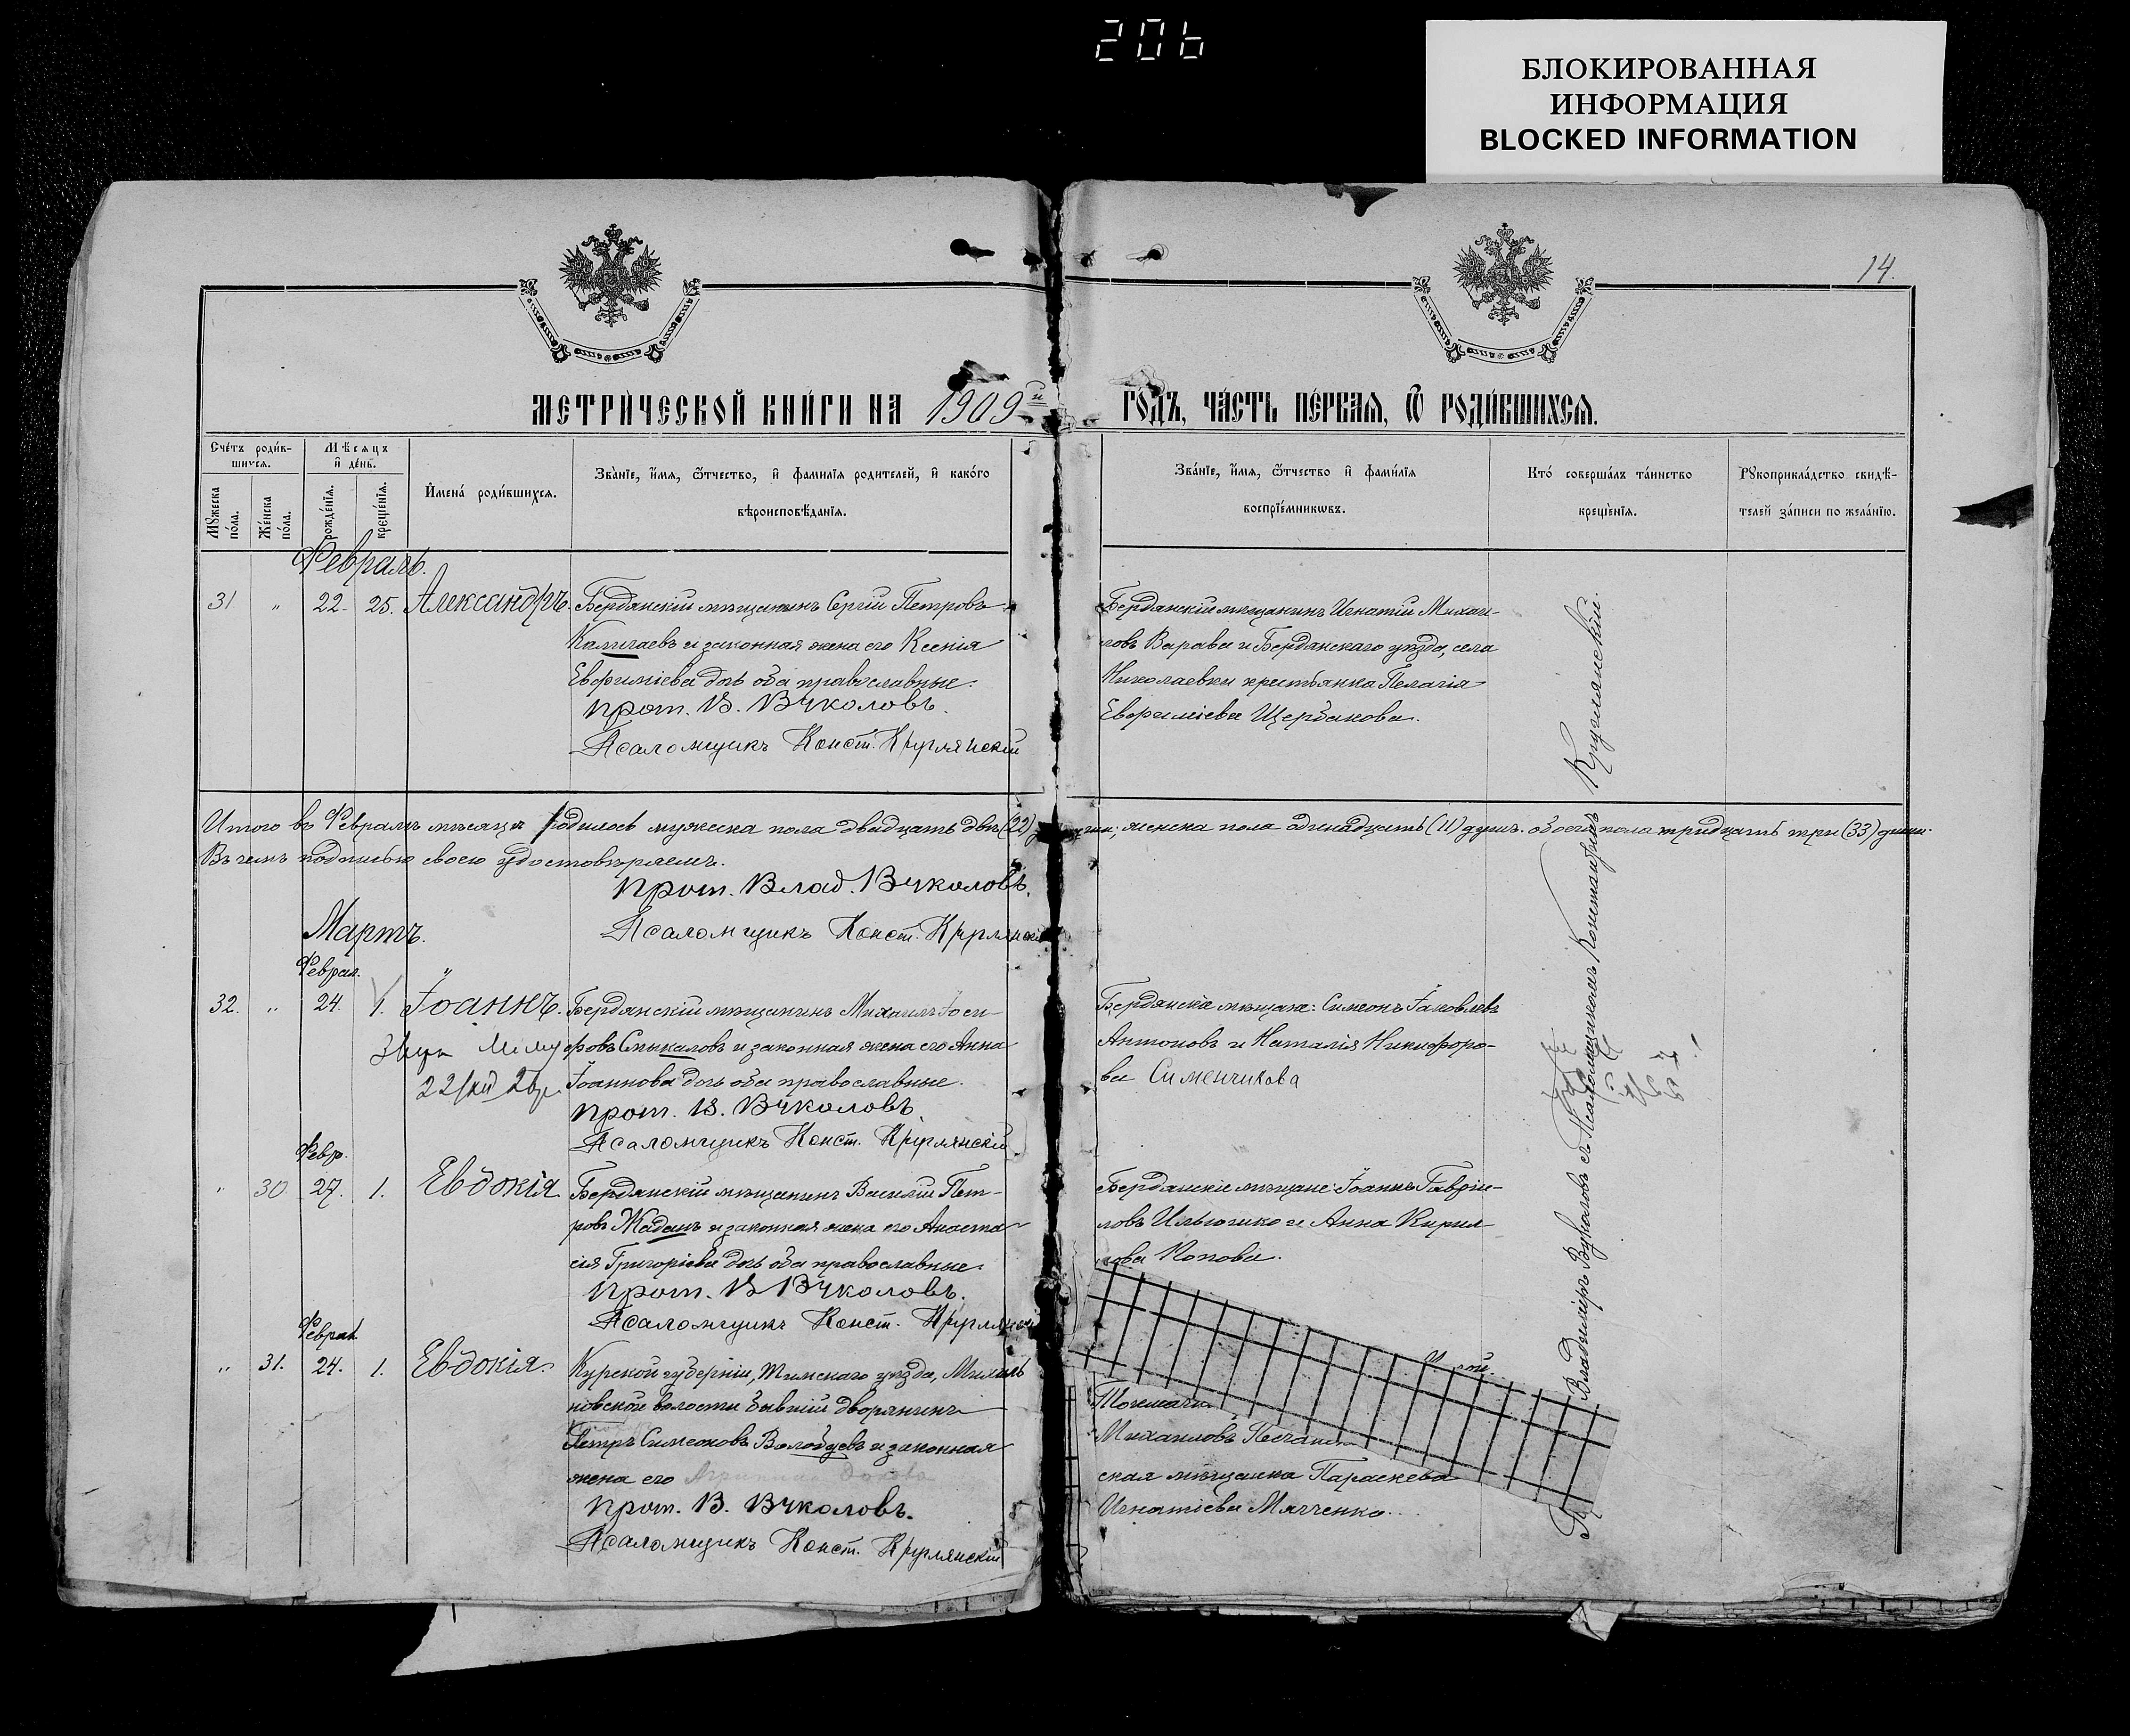 206
БЛОКИРОВАННАЯ
ИНФОРМАЦИЯ
BLOCKED INFORMATION
14.
МЕТРИЧЕСКОЙ КНИГИ НА 1909й
ГОДЪ, ЧАСТЬ ПЕРВАЯ, Ѿ РОДИВШИХСЯ.
Счетъ родив-
шихся.
Мужеска пола.
Женска пола.
Мѣсяцъ
и день.
рожденїя.
крещенїя.
Имена родившихся.
Званїе, имя, ѿтчество, и фамилїя родителей, и какого
вѣроисповѣданїя.
Званїе, имя, ѿтчество и фамилїя
воспрїемникѡвъ.
Кто совершалъ таинство
крещенїя.
Рукоприкладство свидѣ-
телей записи по желанїю.
Февраль.
31. " 22. 25. Александръ. Бердянскій мѣщанинъ Сергій Петровъ
Калигаевъ и законная жена его Ксенія
Евфиміева дочь оба православные.
Прот. В. Вуколовъ.
Псаломщикъ Конст. Круглянскій
Бердянскій мѣщанинъ Игнатій Михаи-
ловъ Варава и Бердянскаго уѣзда, села
Николаевки крестьянка Пелагія
Евфиміева Щербакова.
Итого въ Февралѣ мѣсяцѣ родилось мужеска пола двадцать двѣ (22) души; женска пола одинадцать (11) душъ. обоего пола тридцать три (33) души.
Въ чемъ подписью своею удостовѣряемъ.
Прот. Влад. Вуколовъ.
Псаломщикъ Конст. Круглянскій
Мартъ.
Феврал.
32. " 24. 1. Іоаннъ. Бердянскій мѣщанинъ Михаилъ Іоси-
фовъ Смыкаловъ и законная жена его Анна
Іоаннова дочь оба православные.
Прот. В. Вуколовъ.
Псаломщикъ Конст. Круглянскій
Бердянскіе мѣщане: Симеонъ Іаковлевъ
Антоновъ и Наталія Никифоро-
ва Сименчикова
Февр.
" 30 27. 1. Евдокія. Бердянскій мѣщанинъ Василій Пет-
ровъ Жаданъ и законная жена его Анаста-
сія Григоріева дочь оба православные.
Прот. В Вуколовъ.
Псаломщикъ Конст. Круглянскій
Бердянскіе мѣщане: Іоаннъ Гаврiи-
ловъ Ильюшко и Анна Кирил
лова Попова.
Феврал
" 31. 24. 1. Евдокія. Курской губерніи, Тимскаго уѣзда,
новской волости бывшій дворянинъ
Петръ Симеоновъ Волобуевъ и законная
жена его
Прот. В. Вуколовъ.
Псаломщикъ Конст. Круглянскій
Михаиловъ
ская мѣщанка Параскева
Игнатіева Мятченко.
Владиміръ Вуколовъ съ Псаломщикомъ Константиномъ Круглянскій.